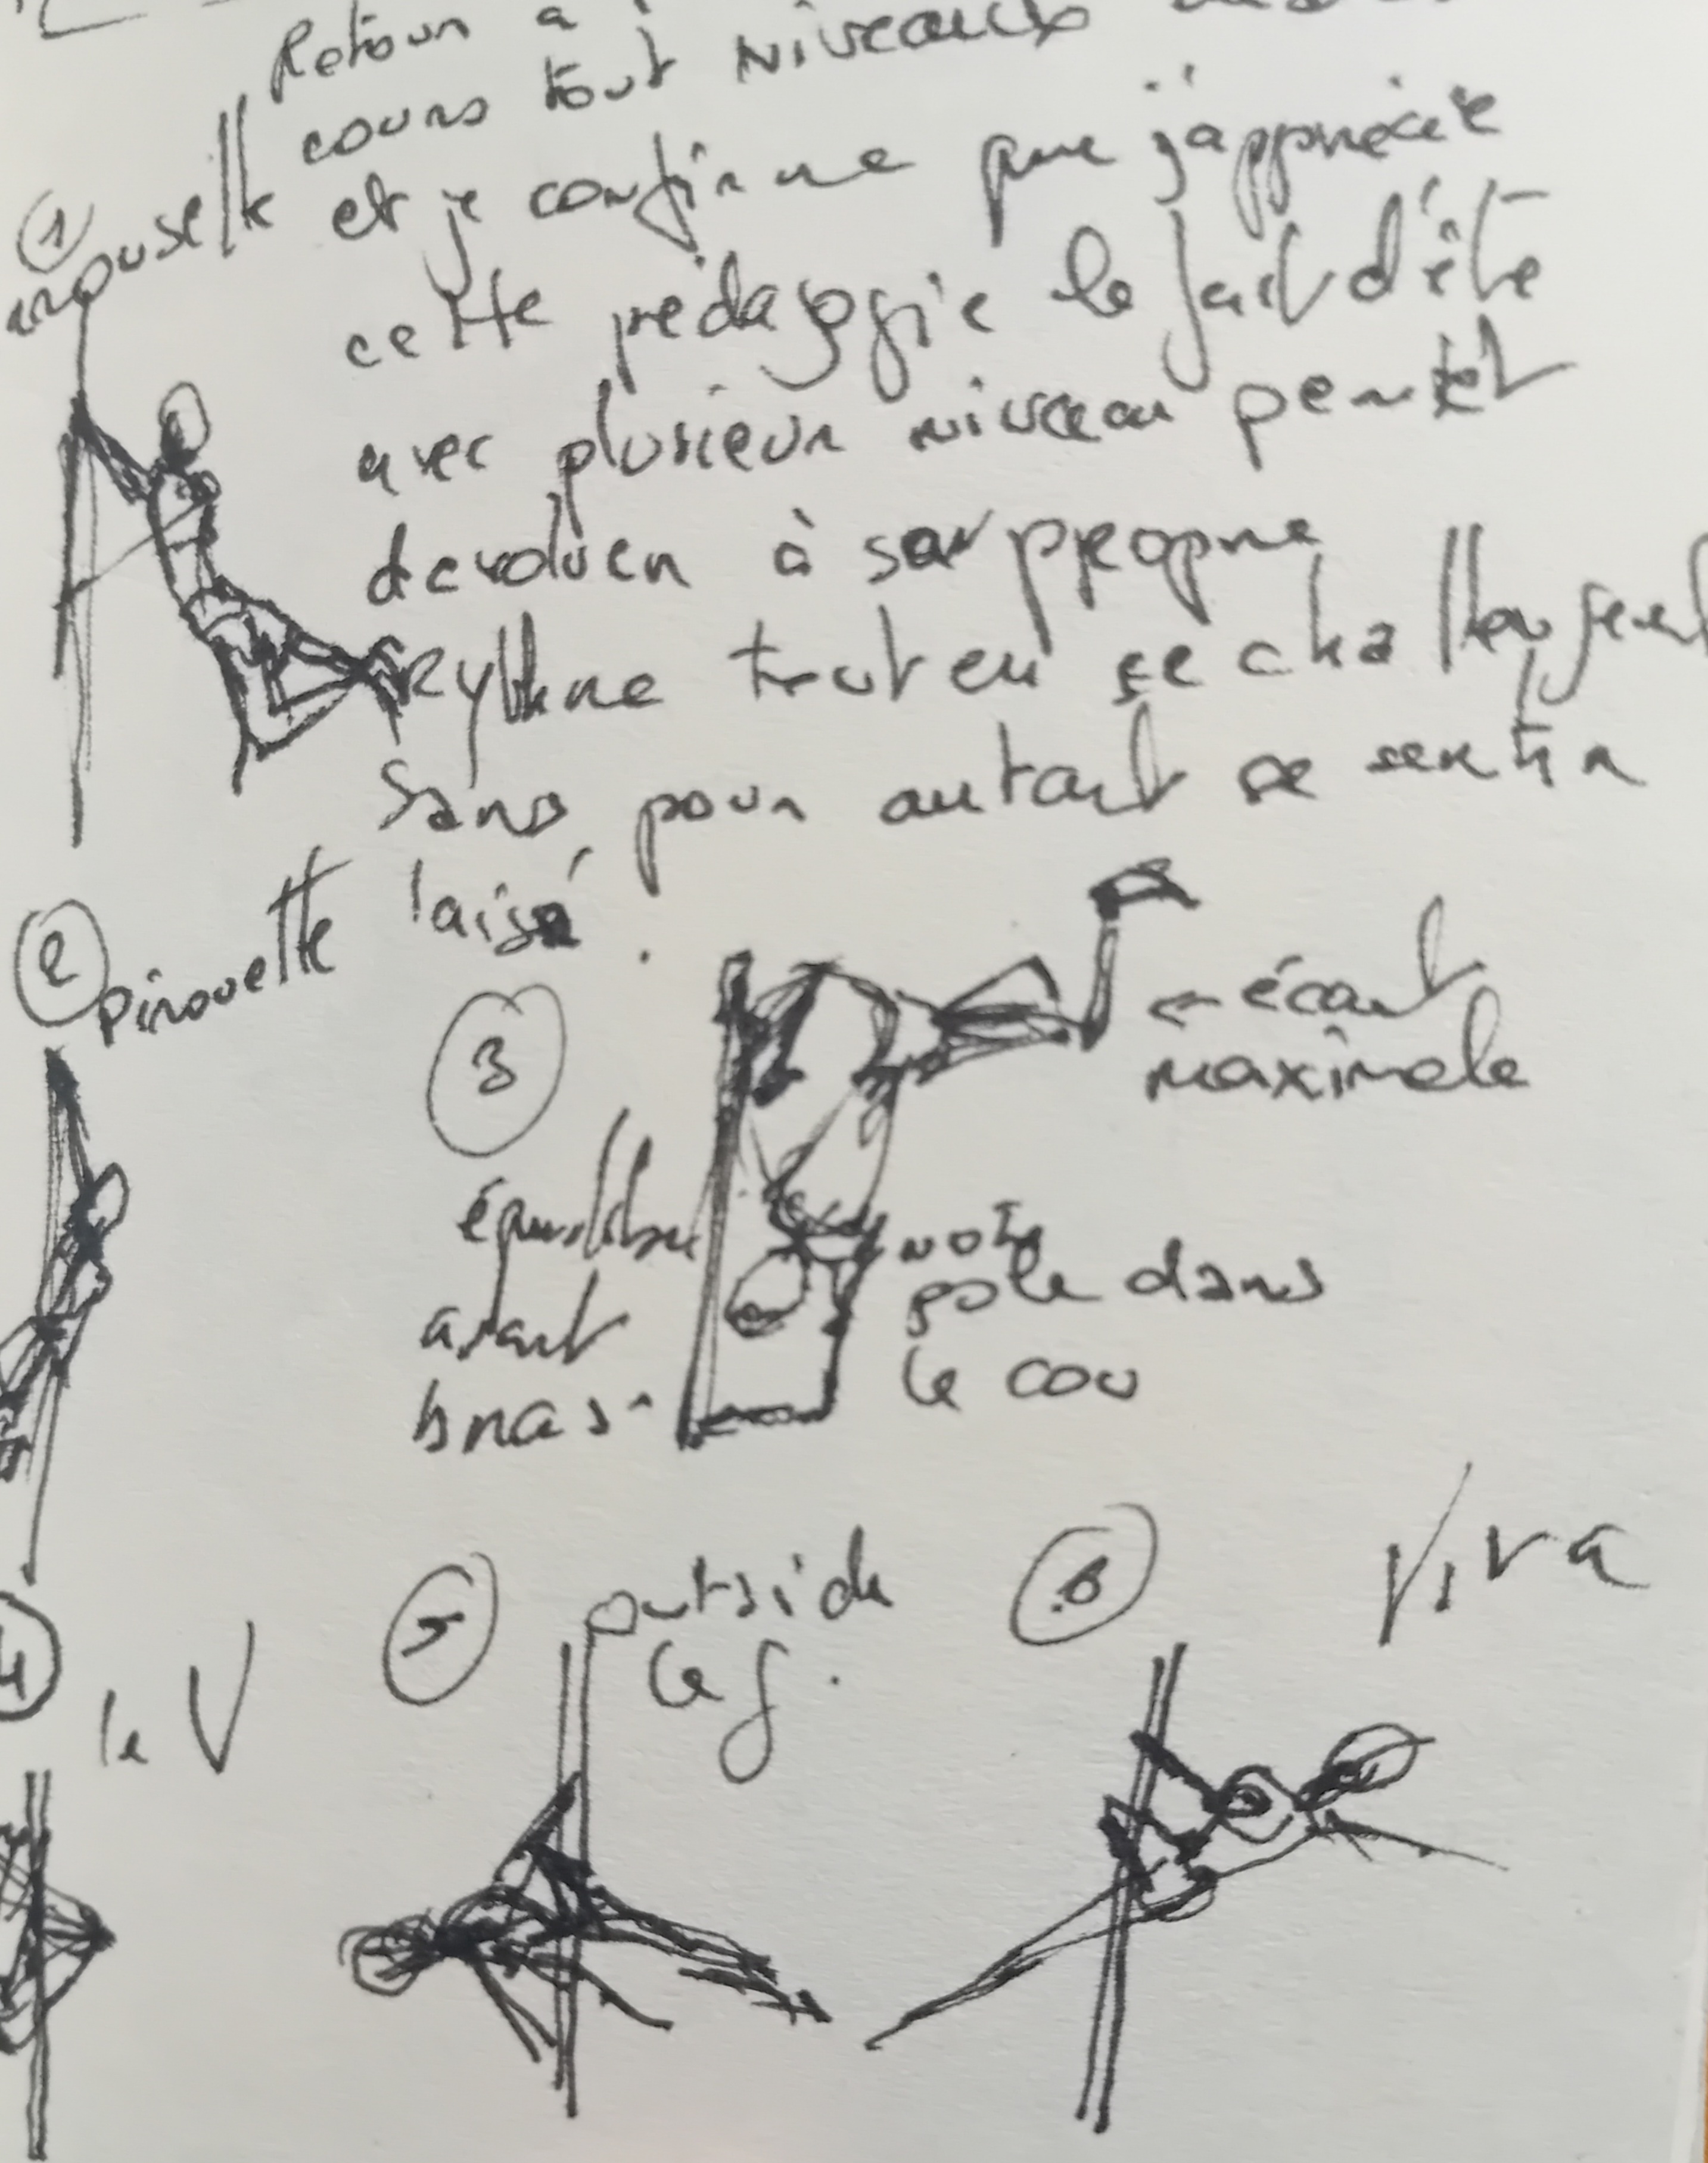 Retour a
cours tout niveaux
et je confirme que j'appréciè
cette pédagogie le fait d'être
avec plusieur niveau pentet
devoluer à son propre
Rythme tout en se challengeant
sans pour autant se sentir
laisé.
①
②
pirouette
③
← écart
maximale
équilibre
avant
bras.
note
pole dans
le cou
4
le V
5
outside
leg.
6
Viva